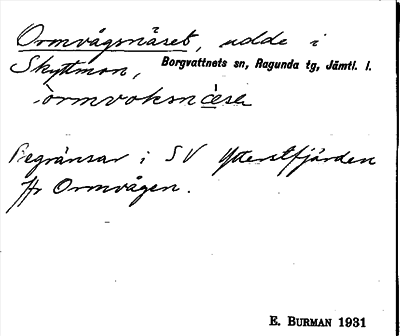 Ormvågsnäset, udde i
Skyttmon, Borgvattnets sn, Ragunda tg, Jämtl. l.
Begränsar i SV Ytterstfjärden
fr Ormvågen.
E. BURMAN 1931